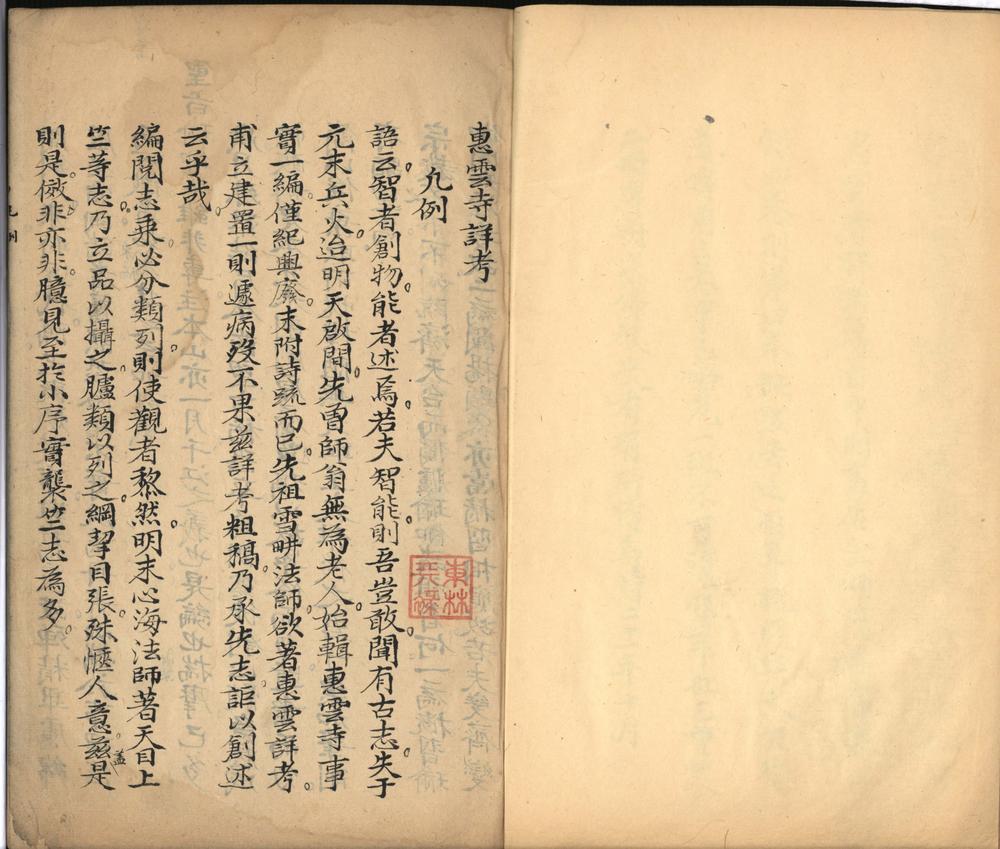 惠雲寺詳考
凡例
語云智者創物能者述焉若夫智能則吾豈敢聞有古志失于
元末兵火迨明天啟間先曾師翁無為老人始輯惠雲寺事
實一編僅紀興廢末附詩疏而已先祖雪畊法師欲著惠雲詳考
甫立建置一則遽病歿不果茲詳考粗稿乃承先志詎以創述
云乎哉
編閱志乘必分類列則使觀者黎然明末心海法師著天目上
竺等志乃立品以攝之臚類以列之綱挈目張殊愜人意茲蓋是
則是倣非亦非臆見至於小序實襲竺志為多
凡例
東林